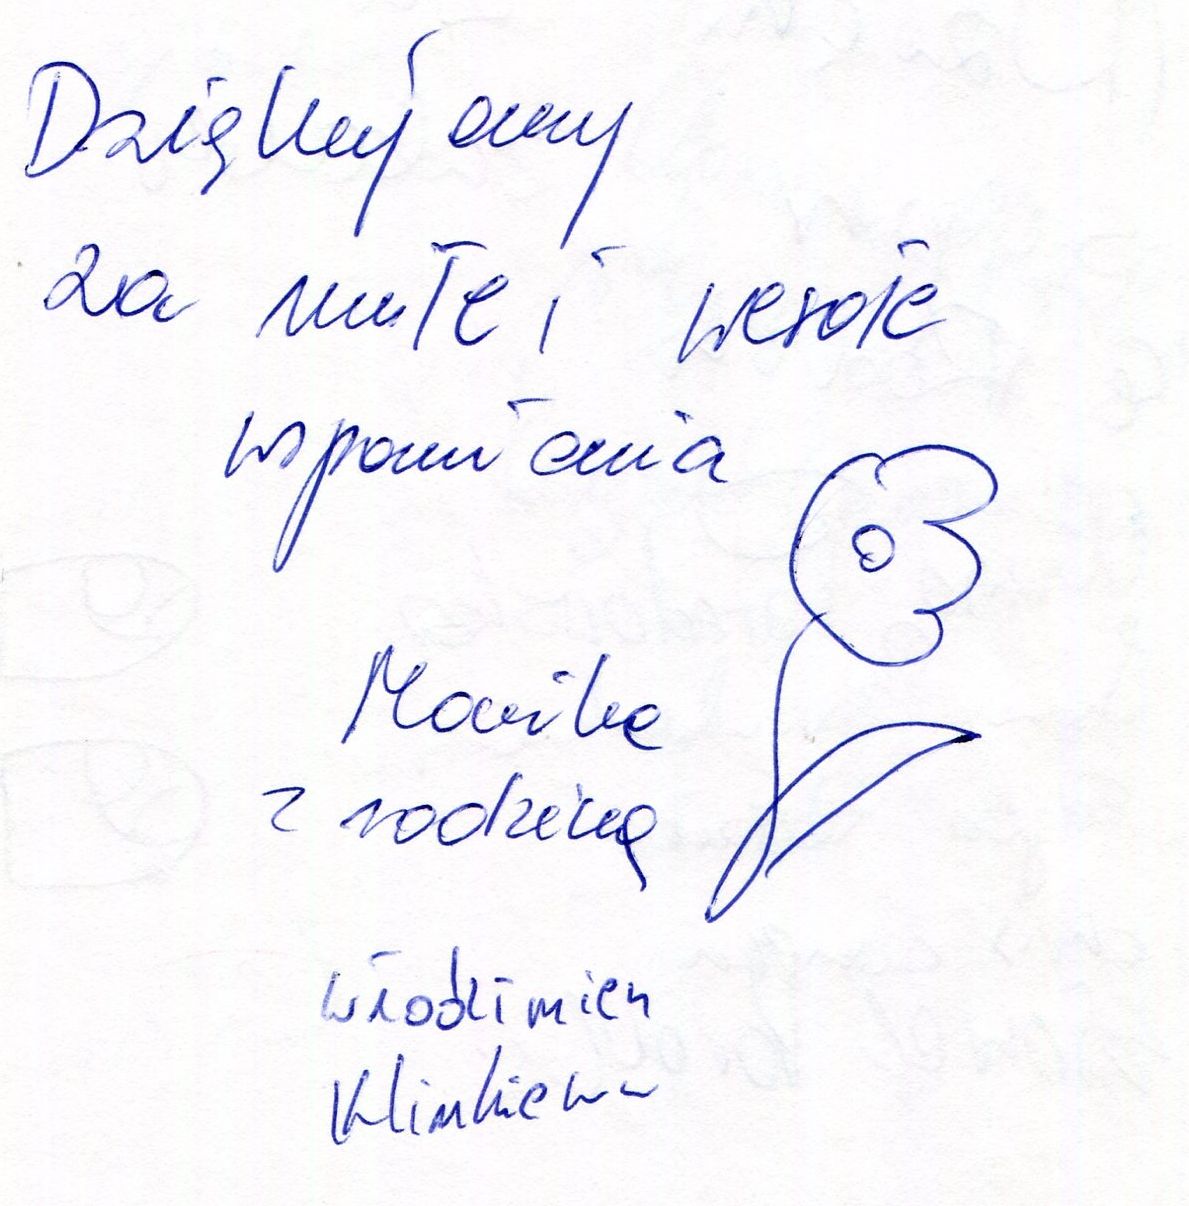 Dziękujemy
za miłe i wesołe
wspomnienia
Monika
z rodziną
Włodzimierz